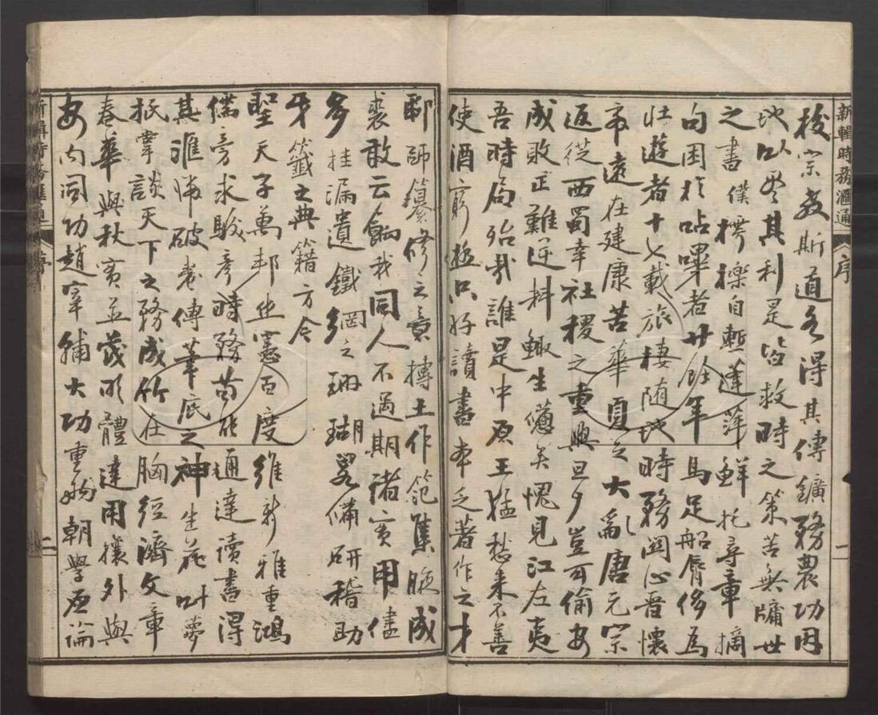 新輯時務滙通
序
一
梭宗教斯道各得其傳鑛務農功因
地以盡其利是皆救時之策苦無牖世
之書僕樗櫟自慙蓬萍鮮托尋章摘
句困於呫嗶者廿餘年馬足船脣侈為
壯遊者十七載旅棲隨地時務關心晉懷
帝遠在建康苦華夏之大亂唐元宗
返從西蜀幸社稷之重興旦夕豈可偷安
成敗正難逆料鯫生憊矣愧見江左夷
吾時局殆哉誰是中原王猛愁來不善
使酒窮極只好讀書本乏著作之才
鄅師纂修之意摶土作範集腋成
裘敢云餉我同人不過期諸實用儘
多挂漏遺鐵網之珊瑚畧備研稽助
牙籤之典籍方今
聖天子萬邦作憲百度維新雅重鴻
儒旁求駿彥時務苟能通達讀書得
其滙歸破卷傳筆底之神生花叶夢
抵掌談天下之務成竹在胸經濟文章
春華與秋實並茂明體達用攘外與
安內同功趙宰輔大功重媲朝學啟論
新輯時務滙通
序
二